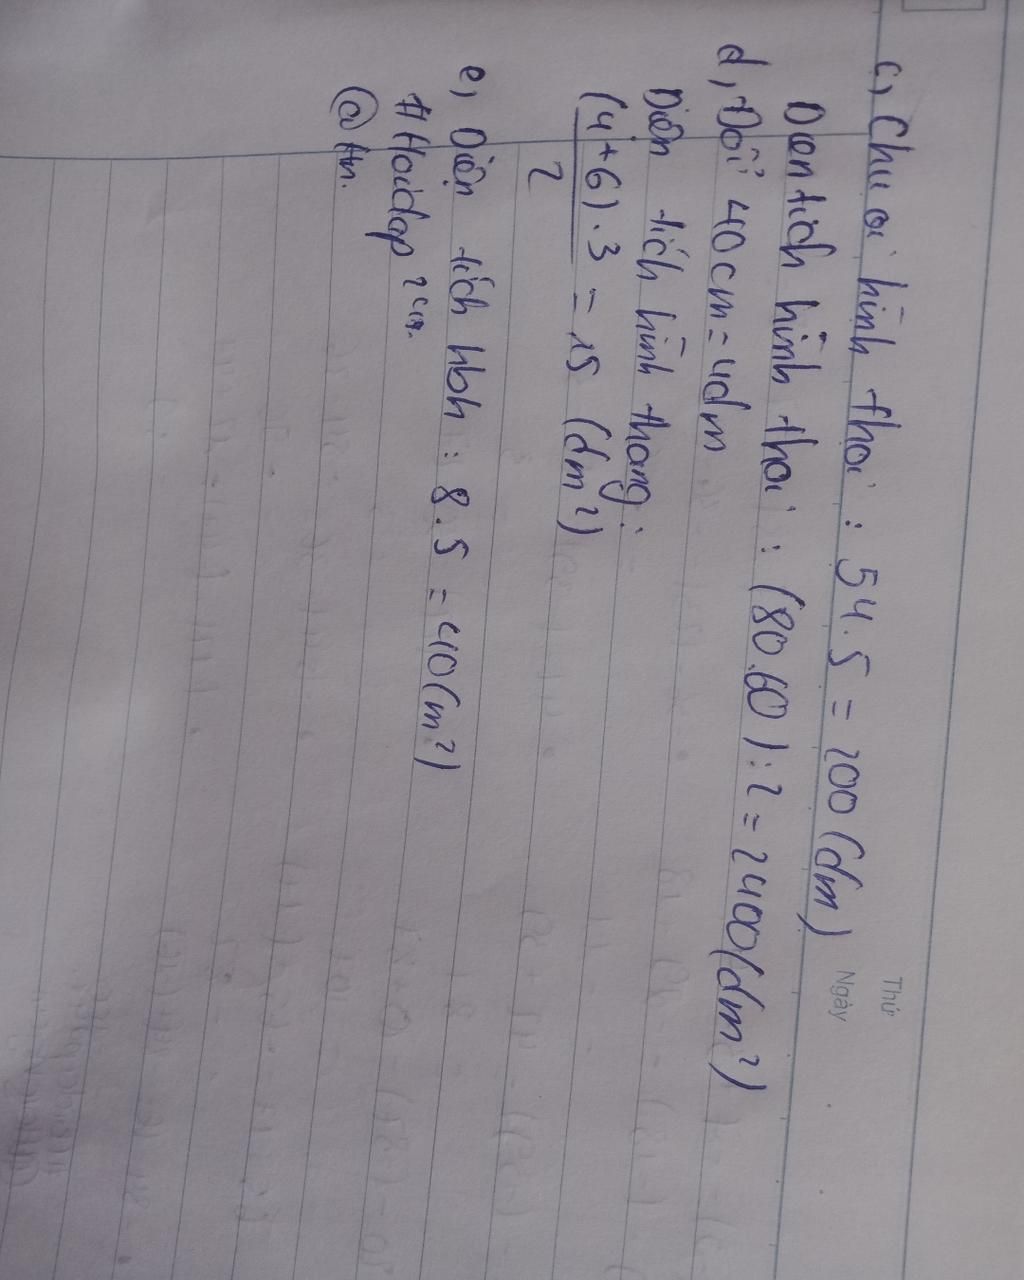 Thứ
Ngày
c, Chu vi hình thoi : 54.5 = 200 (dm)
Diện tích hình thoi : (80.60) : 2 = 2400 (dm²)
d, Đổi 40cm = 4dm
Diện tích hình thang :
(4+6).3 = 15 (dm²)
2
e, Diện tích hbh : 8.5 = 40 (m²)
#Hoidap
@Hn.